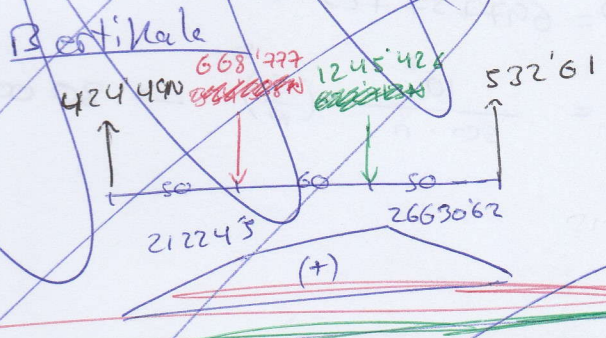 Bertikale
424'49N 668'777 1245'426 532'61
50 60 50
212245 26630'62
(+)